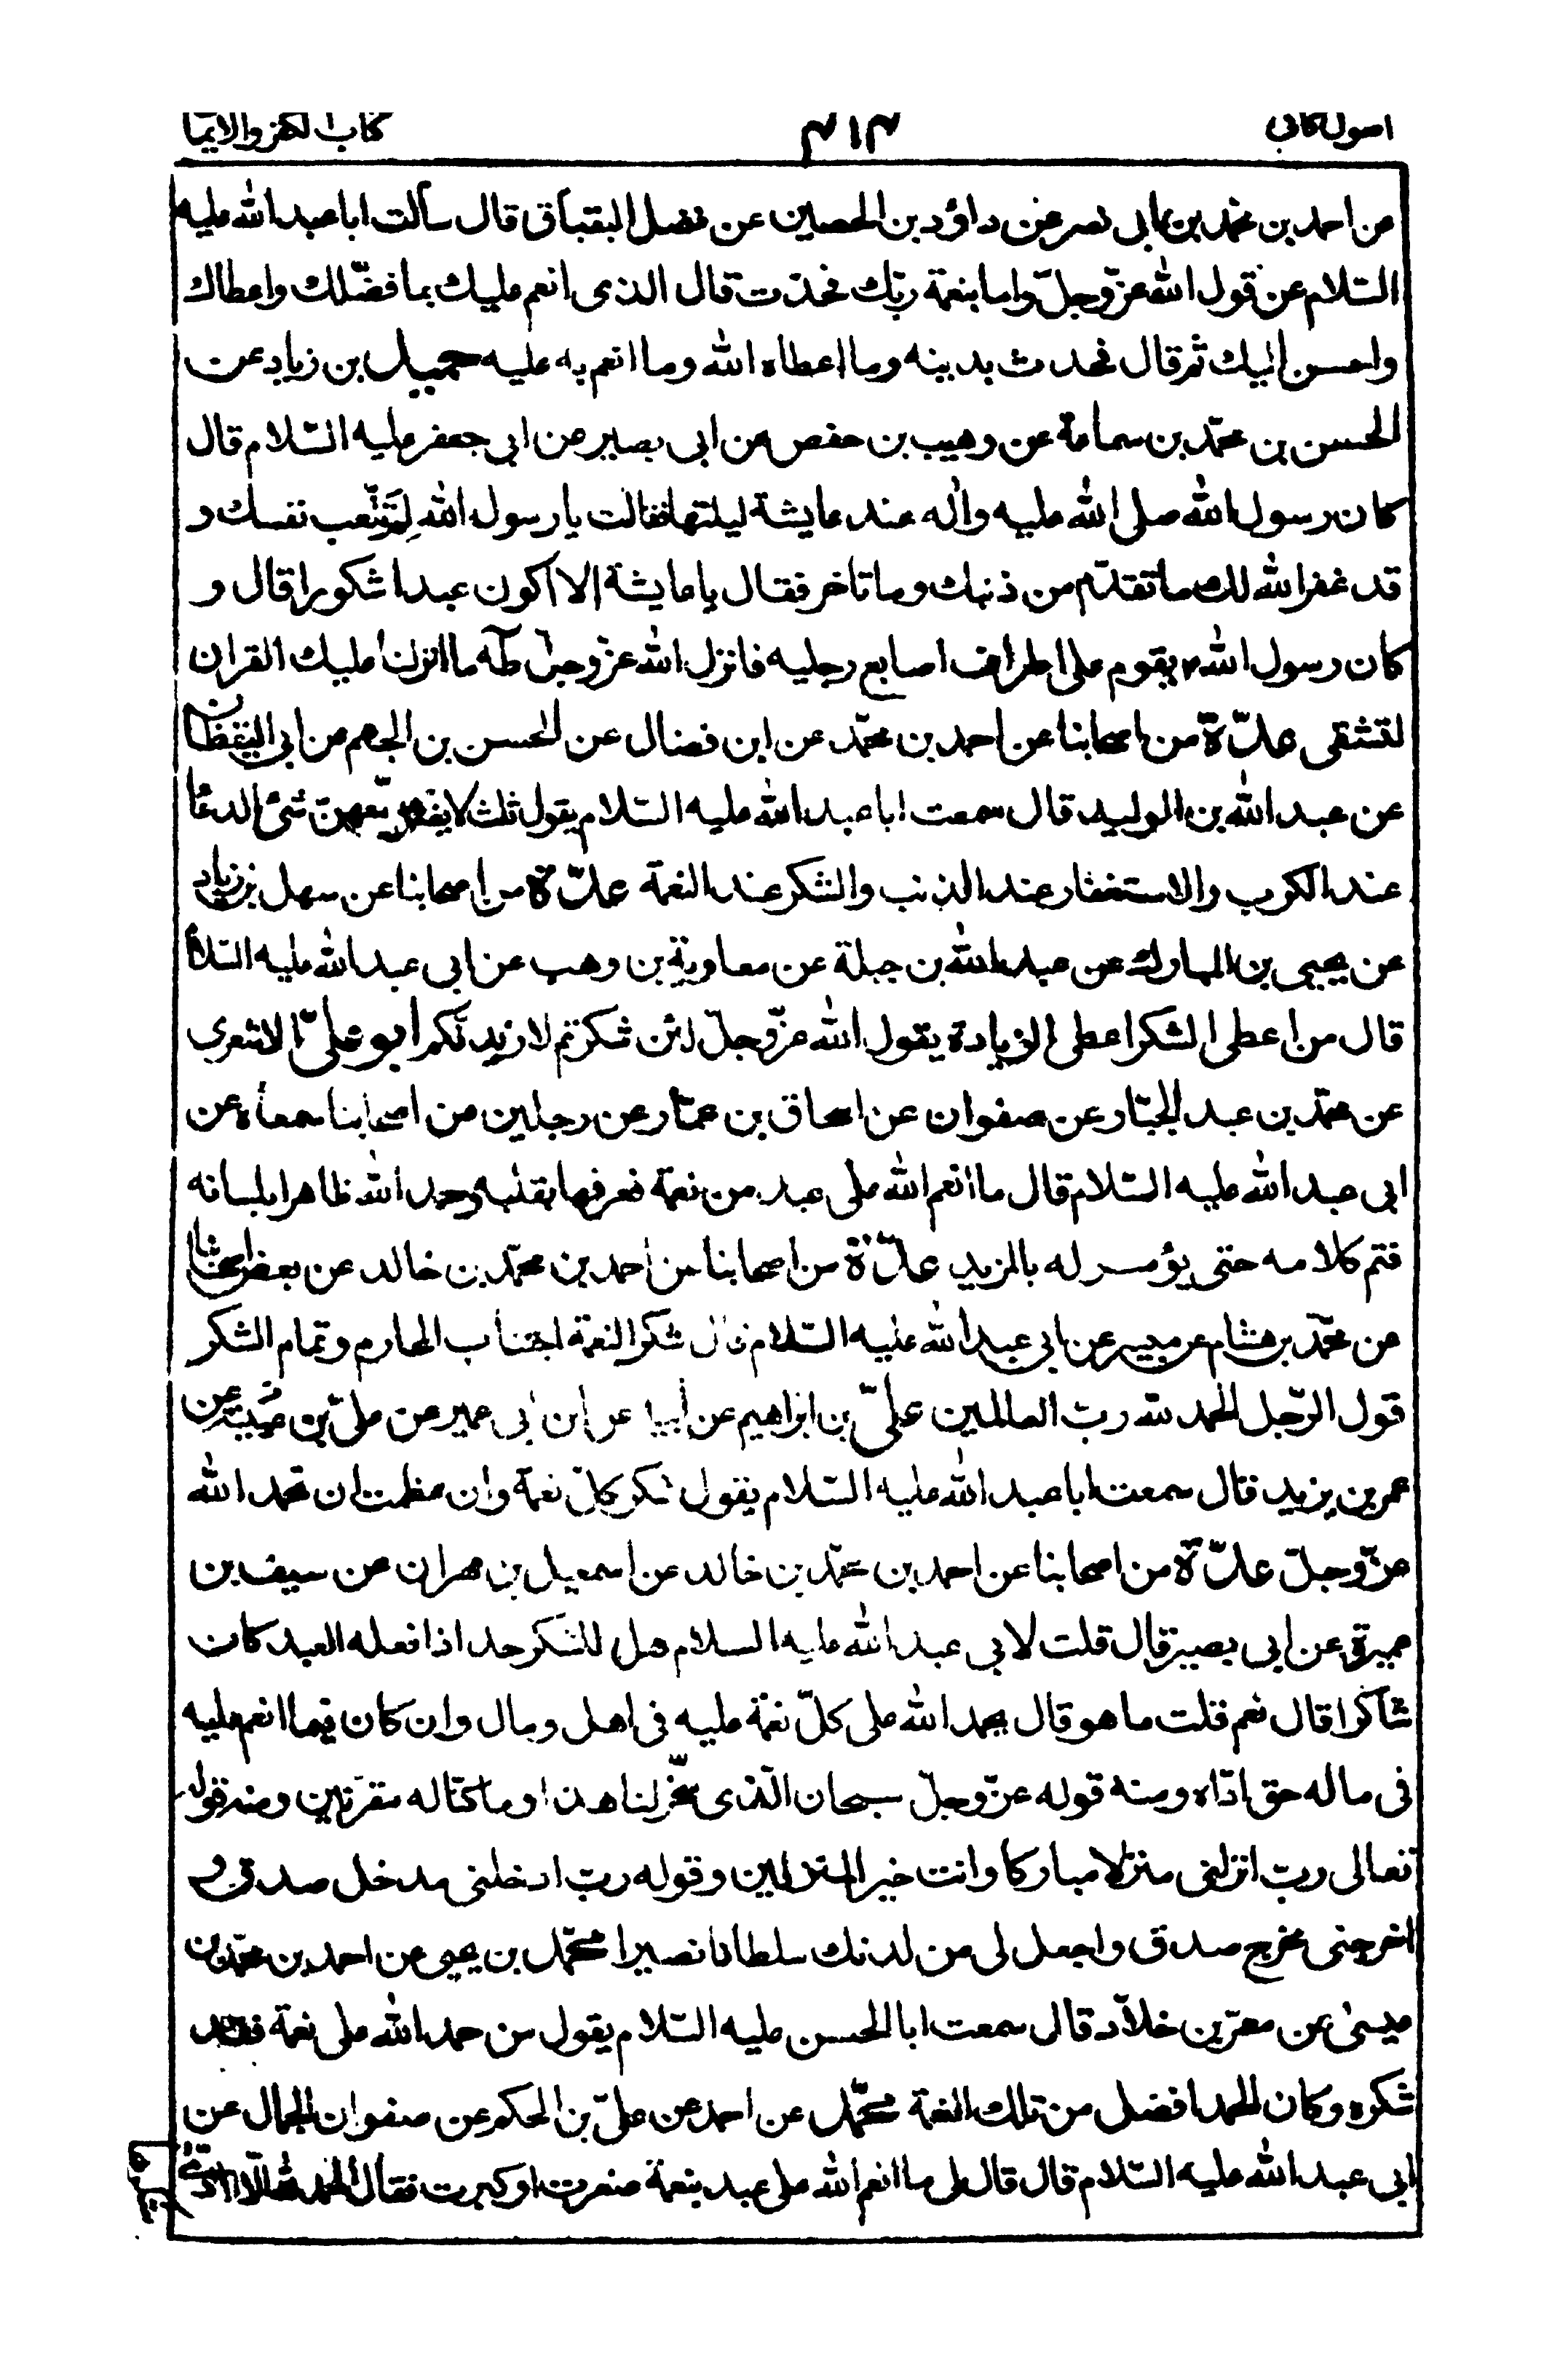 اصول كافى
٣١٣
كتاب الكفر والايما
عن احمد بن محمد بن ابى نصر عن داؤد بن الحصين عن فضل البقباق قال سألت ابا عبد الله عليه
السّلام عن قول الله عزّ وجلّ واما بنعمة ربّك فحدّث قال الذى انعم عليك بما فضّلك واعطاك
واحسن اليك ثم قال فحدث بدينه وما اعطاه الله وما انعم به عليه حميد بن زياد عن
الحسن بن محمّد بن سماعة عن وهيب بن حفص عن ابى بصير عن ابى جعفر عليه السّلام قال
كان رسول الله صلى الله عليه واله عند عايشة ليلتها فقالت يا رسول الله لِمَ تتعب نفسك و
قد غفر الله لك ما تقدّم من ذنبك وما تاخر فقال يا عايشة الا اكون عبدا شكورا قال و
كان رسول الله ص يقوم على اطراف اصابع رجليه فانزل الله عزّ وجلّ طه ما انزلنا عليك القران
لتشقى عدّة من اصحابنا عن احمد بن محمّد عن ابن فضال عن الحسن بن الجهم عن ابى اليقظان
عن عبد الله بن الوليد قال سمعت ابا عبد الله عليه السّلام يقول ثلث لا يضرّ معهنّ شئ الدعا
عند الكرب والاستغفار عند الذنب والشكر عند النعمة عدّة من اصحابنا عن سهل بن زياد
عن يحيى بن المبارك عن عبد الله بن جبلة عن معاوية بن وهب عن ابى عبد الله عليه السّلا
قال من اعطى الشكر اعطى الزيادة يقول الله عزّ وجلّ لئن شكرتم لازيدنّكم ابو علىّ الاشعرى
عن محمّد بن عبد الجبّار عن صفوان عن اسحاق بن عمّار عن رجلين من اصحابنا سمعاه عن
ابى عبد الله عليه السّلام قال ما انعم الله على عبد من نعمة فعرفها بقلبه وحمد الله ظاهرا بلسانه
فتم كلامه حتى يؤمر له بالمزيد عدّة من اصحابنا عن احمد بن محمّد بن خالد عن بعض اصحابنا
عن محمّد بن هشام عن ميسر عن ابى عبد الله عليه السّلام قال شكر النعمة اجتناب المحارم وتمام الشكر
قول الرّجل الحمد لله ربّ العالمين علىّ بن ابراهيم عن ابيه عن ابن ابى عمير عن علىّ بن عيينة عن
عمر بن يزيد قال سمعت ابا عبد الله عليه السّلام يقول شكر كلّ نعمة وان عظمت ان تحمد الله
عزّ وجلّ عدّة من اصحابنا عن احمد بن محمّد بن خالد عن اسمعيل بن مهران عن سيف بن
عميرة عن ابى بصير قال قلت لابى عبد الله عليه السلام هل للشكر حد اذا فعله العبد كان
شاكرا قال نعم قلت ما هو قال يحمد الله على كلّ نعمة عليه فى اهل ومال وان كان فيما انعم عليه
فى ماله حق ادّاه ومنه قوله عزّ وجلّ سبحان الّذى سخّر لنا هذا وما كنّا له مقرنين ومنه قوله
تعالى ربّ انزلنى منزلا مباركا وانت خير المنزلين وقوله ربّ ادخلنى مدخل صدق و
اخرجنى مخرج صدق واجعل لى من لدنك سلطانا نصيرا محمّد بن يحيى عن احمد بن محمّد بن
عيسى عن معمّر بن خلاّد قال سمعت ابا الحسن عليه السّلام يقول من حمد الله على نعمة فقد
شكره وكان الحمد افضل من تلك النعمة محمّد عن احمد عن علىّ بن الحكم عن صفوان الجمال عن
ابى عبد الله عليه السّلام قال قال لى ما انعم الله على عبد بنعمة صغرت او كبرت فقال الحمد لله الّا ادّى